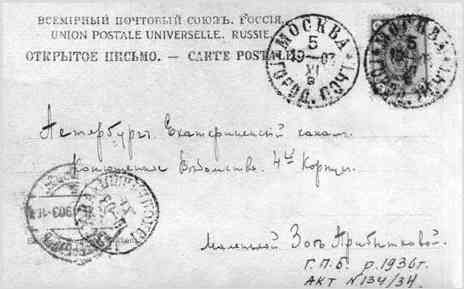 ВСЕМІРНЫЙ ПОЧТОВЫЙ СОЮЗЪ. РОССІЯ.
UNION POSTALE UNIVERSELLE. RUSSIE.
ОТКРЫТОЕ ПИСЬМО. — CARTE POSTALE
МОСКВА
5
19—03
XI
ГОРОД. ПОЧТ.
Петербургъ. Екатерининскій каналъ.
Конюшенное Вѣдомство. 4й Корпусъ.
Маленькой Зоѣ Прибытковой.
Г.П.Б. р. 1936г.
АКТ № 134/34